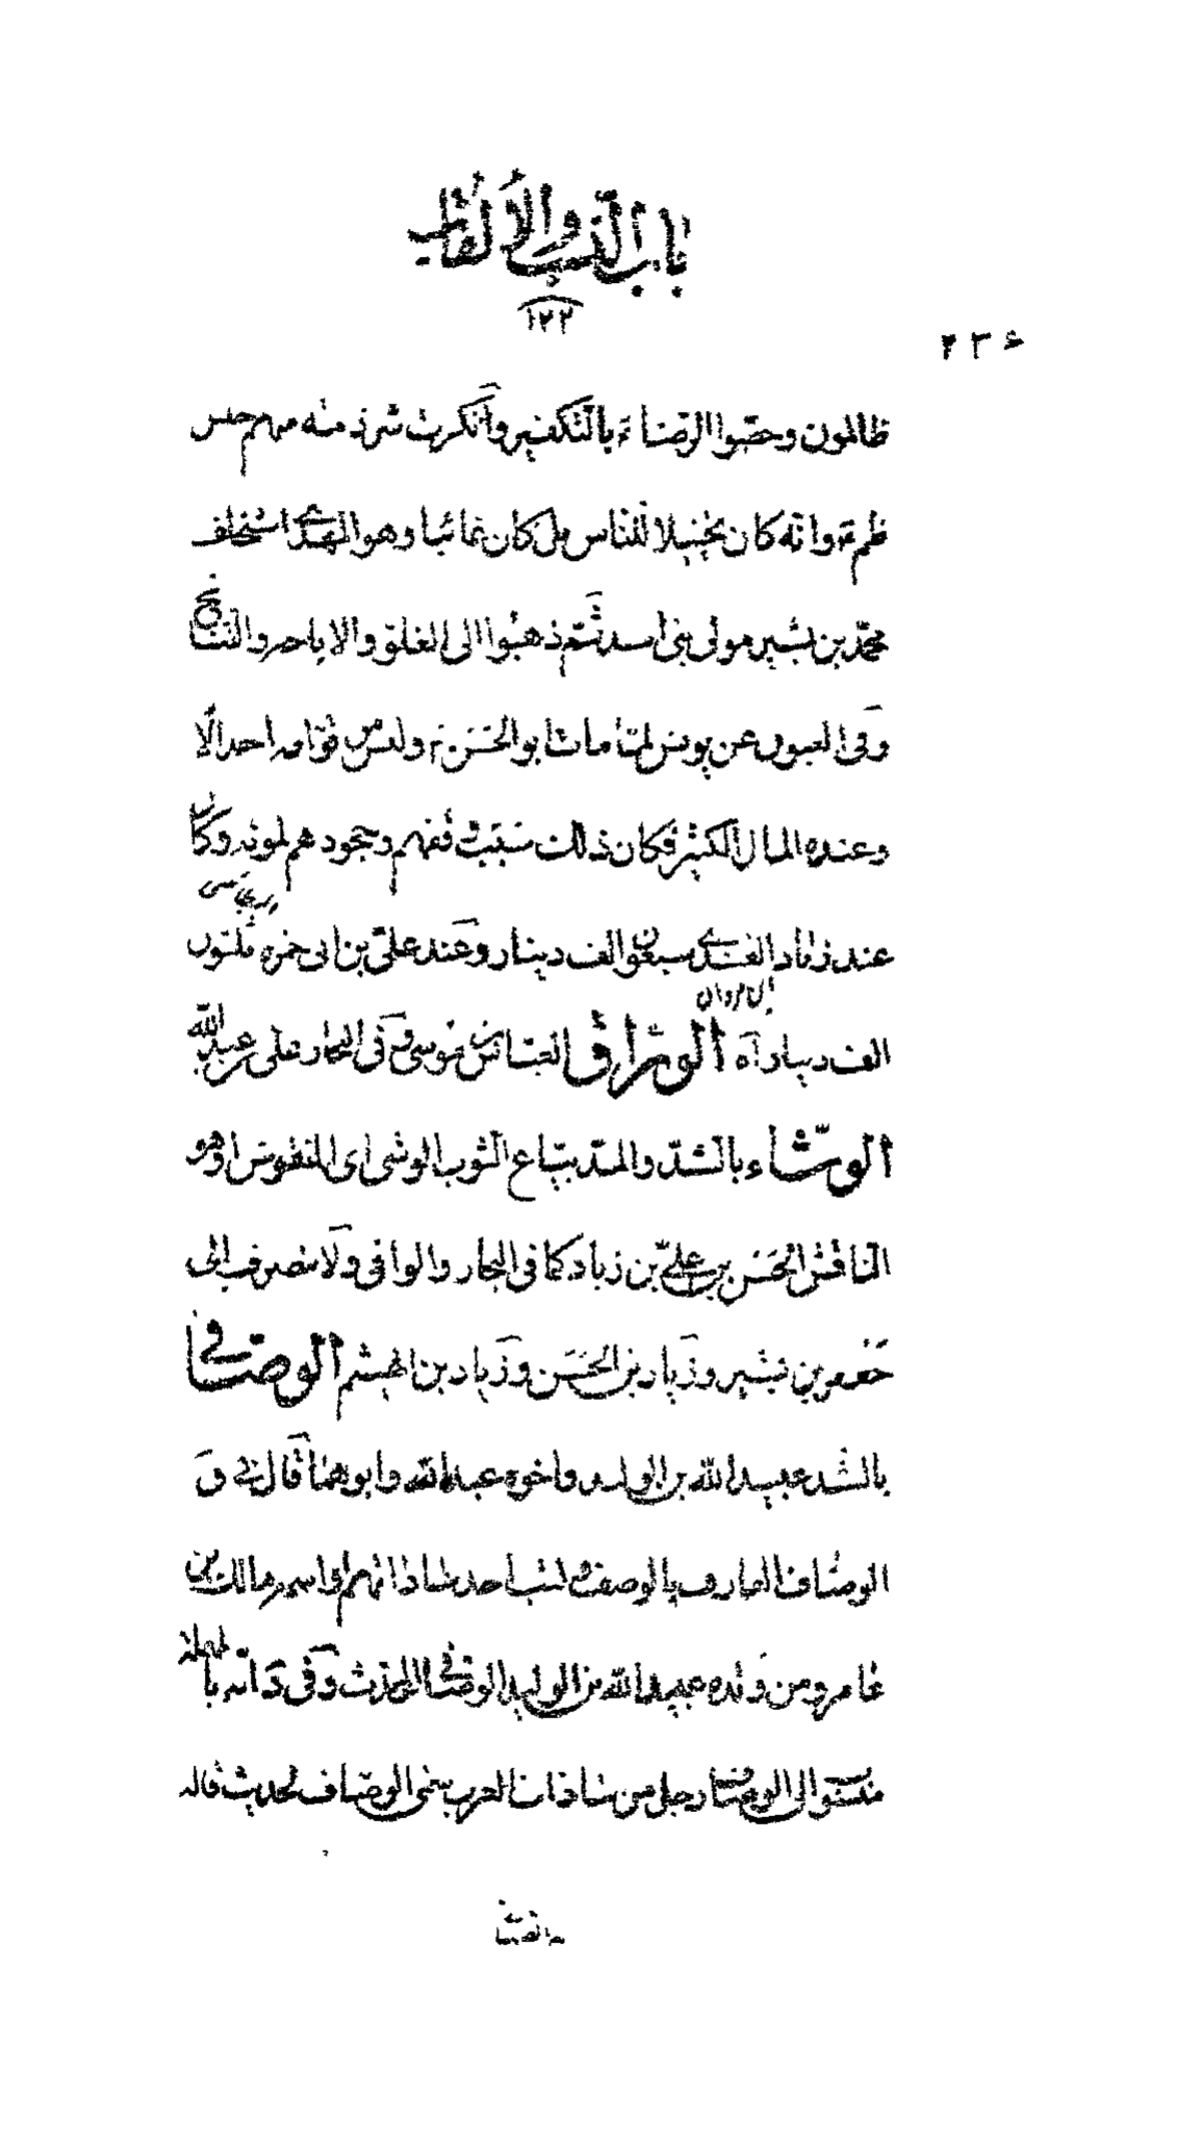 باب النسب والألقاب
١٢٢
٢٣٤
ظالمون وخصّوا الرضاءَ بالتكفير وأنكرت شرذمة منهم حبس
ظم ع وانّه كان تخييلا للناس بل كان غائبا وهو المهدي استخلف
محمّد بن بشير مولى بنى اسد ثمّ ذهبوا الى الغلوّ والاباحة والتناسخ
وفى العيون عن يونس لمّا مات ابو الحسن ع وليس من قوّامه احد الّا
وعنده المال الكثير فكان ذلك سبب وقفهم وجحودهم لموته وكان
عند زياد القندي سبعون الف دينار وعند علىّ بن ابى حمزة ثلثون
بن مروان
الف دينار آه الورّاق العبّاس بن موسى وفى البحار على بن عبد الله
الوشّاء بالشدّ والمدّ بيّاع الثوب الوشى اى المنقوض او هو
النّاقش الحسن بن علىّ بن زياد كما فى البحار والوافى ولا ينصرف الى
جعفر بن بشير وزياد بن الحسن وزياد بن الهيثم الوصّافى
بالشد عبيد الله بن الوليد واخوه عبد الله وابوهما قال فى ق
الوصّاف العارف بالوصف ولقب احد ساداتهم او اسمه مالك بن
عامر ومن ولده عبيد الله بن الوليد الوصّافى المحدّث وفى د انّه بالمهملة
منسوب الى الوصّاف رجل من سادات العرب سمّى الوصّاف لحديث قاله